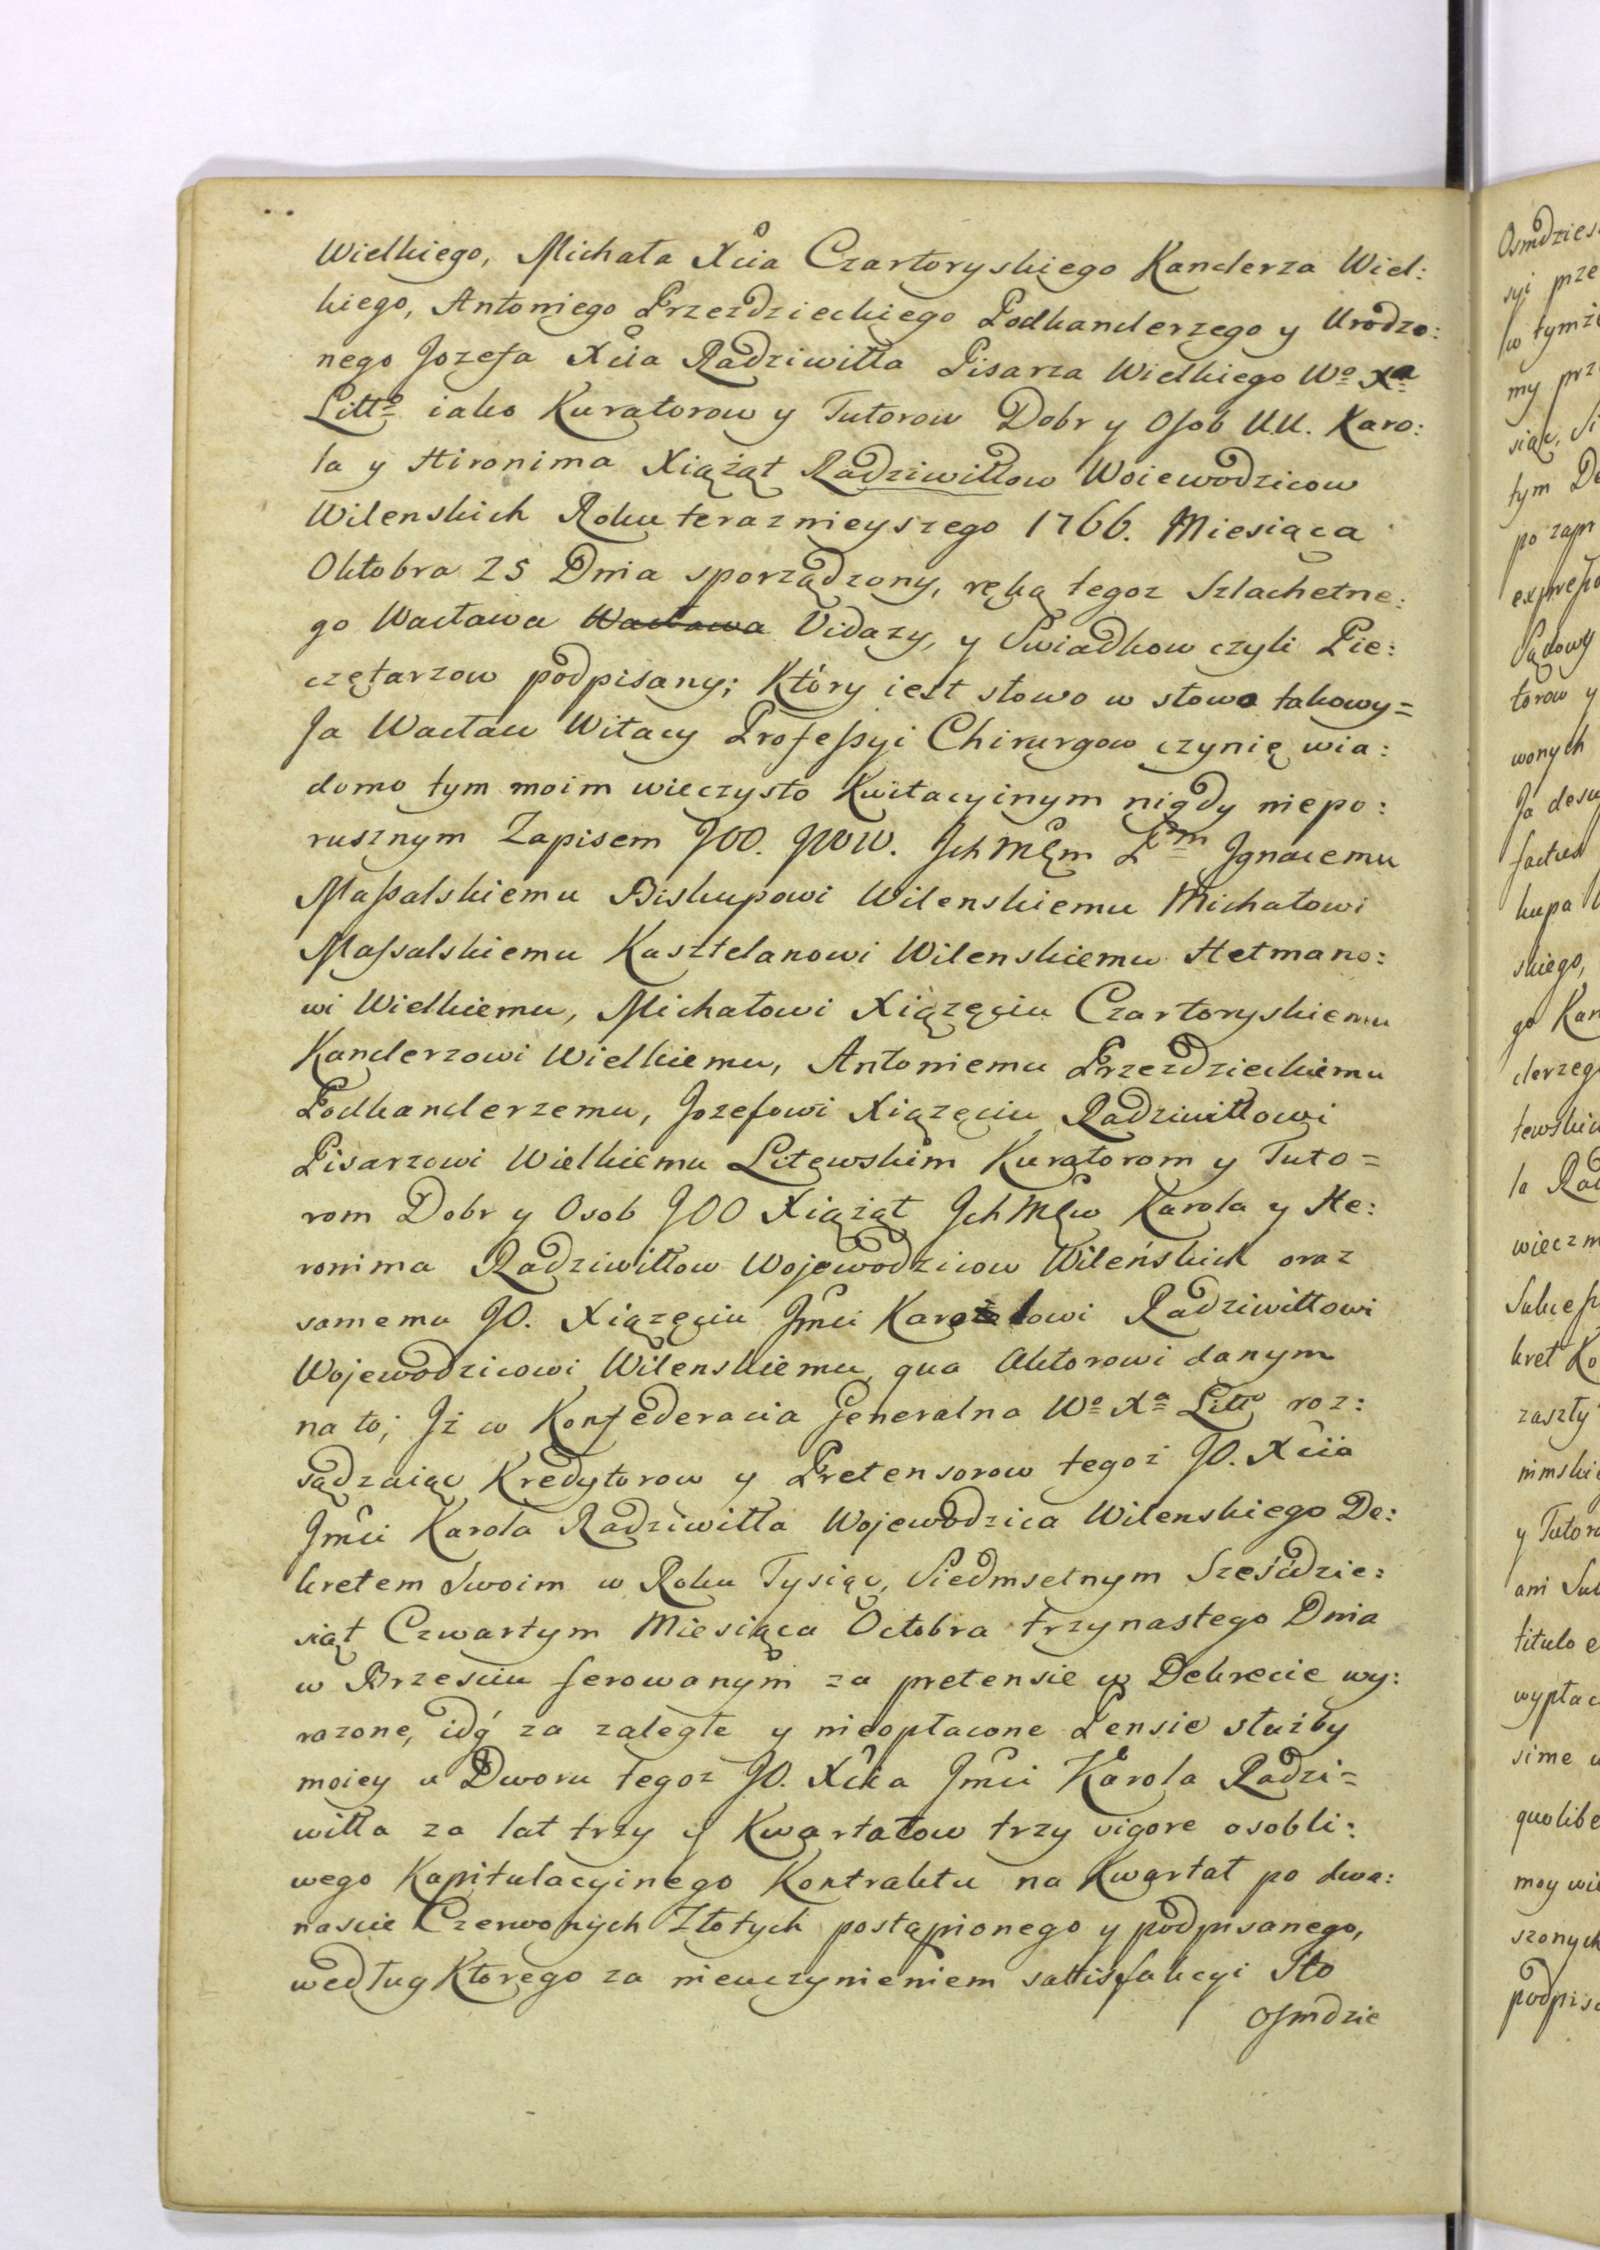 Wielkiego, Michała Xcia Czartoryskiego Kanclerza Wiel:
kiego, Antoniego Przezdzieckiego Podkanclerzego y Urodzo:
nego Jozefa Xcia Radziwiłła Pisarza Wielkiego Wo Xa
Litto iako Kuratorow y Tutorow Dobr y Osob U.U. Karo:
la y Hironima Xiążąt Radziwiłłow Woiewodzicow
Wilenskich Roku teraznieyszego 1766. Miesiąca
Oktobra 25 Dnia sporządzony, ręką tegoz Szlachetne:
go Wacława Wacława Vidazy, y Swiadkow czyli Pie:
czętarzow podpisany; Który iest słowo w słowo takowy=
Ja Wacław Witacy Professyi Chirurgow czynię wia:
domo tym moim wieczysto Kwitacyinym nigdy niepo:
rusznym Zapisem JOO. JWW. Ich Mçm Pm Ignacemu
Massalskiemu Biskupowi Wilenskiemu Michałowi
Massalskiemu Kasztelanowi Wilenskiemu Hetmano:
wi Wielkiemu, Michałowi Xiązęciu Czartoryskiemu
Kanclerzowi Wielkiemu, Antoniemu Przezdzieckiemu
Podkanclerzemu, Jozefowi Xiązęciu Radziwiłłowi
Pisarzowi Wielkiemu Litewskim Kuratorom y Tuto=
rom Dobr y Osob JOO Xiążąt Ich Mçw Karola y He:
ronima Radziwiłłow Wojewodzicow Wileńskich oraz
samemu JO. Xiązęciu Jmci Karolowi Radziwiłłowi
Wojewodzicowi Wilenskiemu qua Aktorowi danym
na to; Iż w Konfederacia Generalna Wo Xa Litto roz:
sądzaiąc Kredytorow y Pretensorow tegoż JO. Xcia
Jmci Karola Radziwiłła Wojewodzica Wilenskiego De:
kretem Swoim w Roku Tysiąc, Siedmsetnym Sześćdzie:
siąt Czwartym Miesiąca Octobra trzynastego Dnia
w Brzesciu ferowanym za pretensie w Dekrecie wy:
razone, idq za zaległe y nieopłacone Pensie służby
moiey u Dworu tegoz JO. Xcia Jmci Karola Radzi=
wiłła za lat trzy y Kwartałow trzy vigore osobli:
wego Kapitulacyinego Kontraktu na Kwartał po dwa:
nascie Czerwonych Złotych postąpionego y podpisanego,
według Ktorego za nieuczynieniem sattisfakcyi Sto
Osmdzie
Osmdzies
syi prze
w tymże
my prz
siąc, Si
tym De
po zapr
expresso
Sądowy
torow y
wonych
Ja desu
factus
kupa W
skiego,
go Kan
clerzeg
tewskic
la Rad
wieczn
Sukcess
kret Ko
zaszły
y Tutor
ani Suk
titulo e
wypłac
sime u
quolibe
moy wie
szonych
podpisa